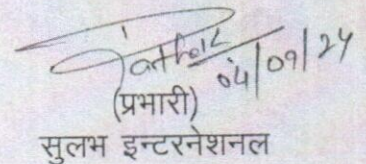 04/09/24
(प्रभारी)
सुलभ इन्टरनेशनल